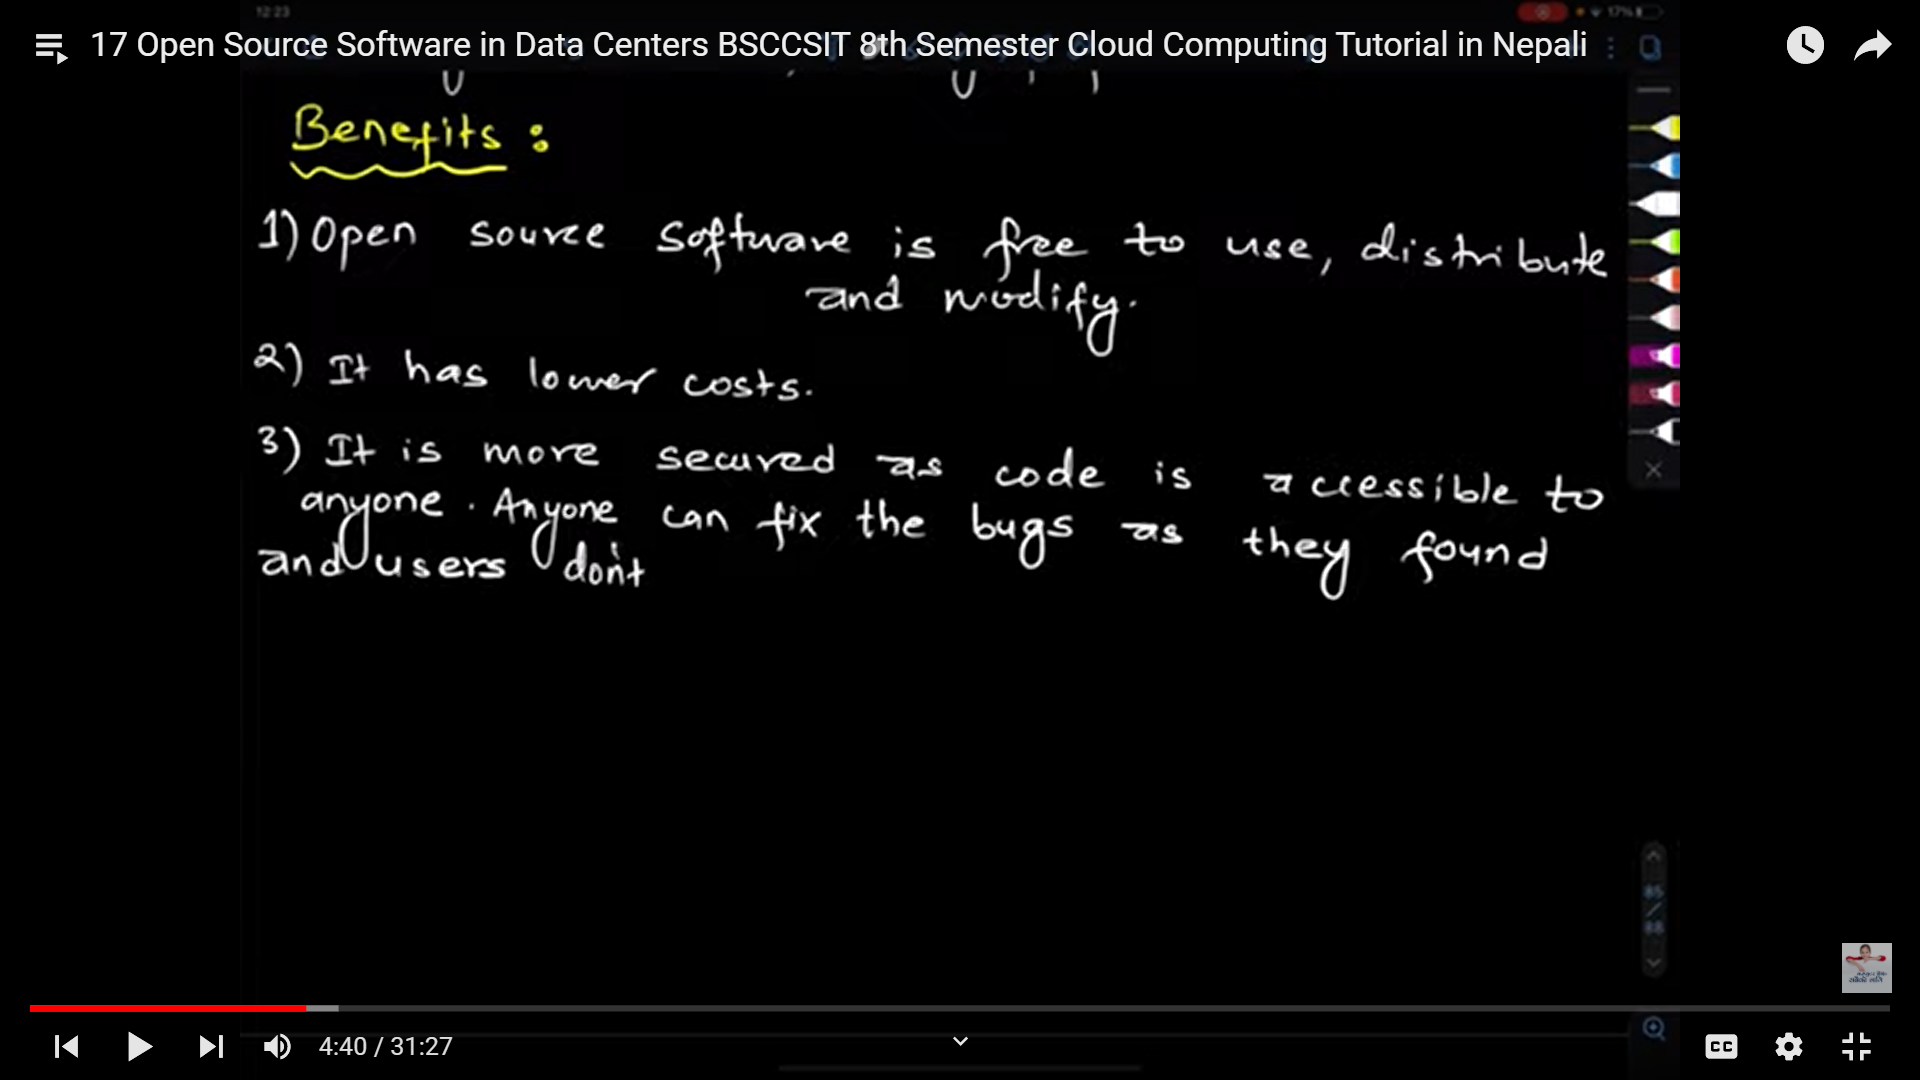 12:23
17%
17 Open Source Software in Data Centers BSCCSIT 8th Semester Cloud Computing Tutorial in Nepali
Benefits :
1) Open source software is free to use, distribute
and modify.
2) It has lower costs.
3) It is more secured as code is accessible to
anyone. Anyone can fix the bugs as they found
and users don't
85
/
88
4:40 / 31:27
CC